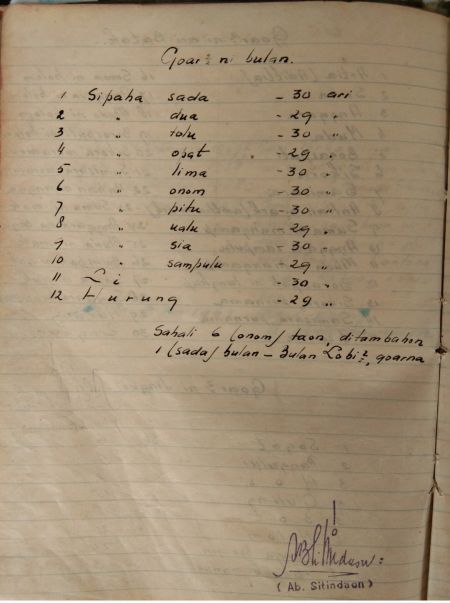 Goar² ni bulan.
1 Sipaha sada - 30 ari
2 " dua - 29 "
3 " tolu - 30 "
4 " opat - 29 "
5 " lima - 30 "
6 " onom - 30 "
7 " pitu - 30 "
8 " ualu - 29 "
9 " sia - 30 "
10 " sampulu - 29 "
11 Li - 30 "
12 Hurung - 29 "
Sahali 6 (onom) taon, ditambahon
1 (sada) bulan - Bulan Lobi², goarna
(Ab. Sitindaon)